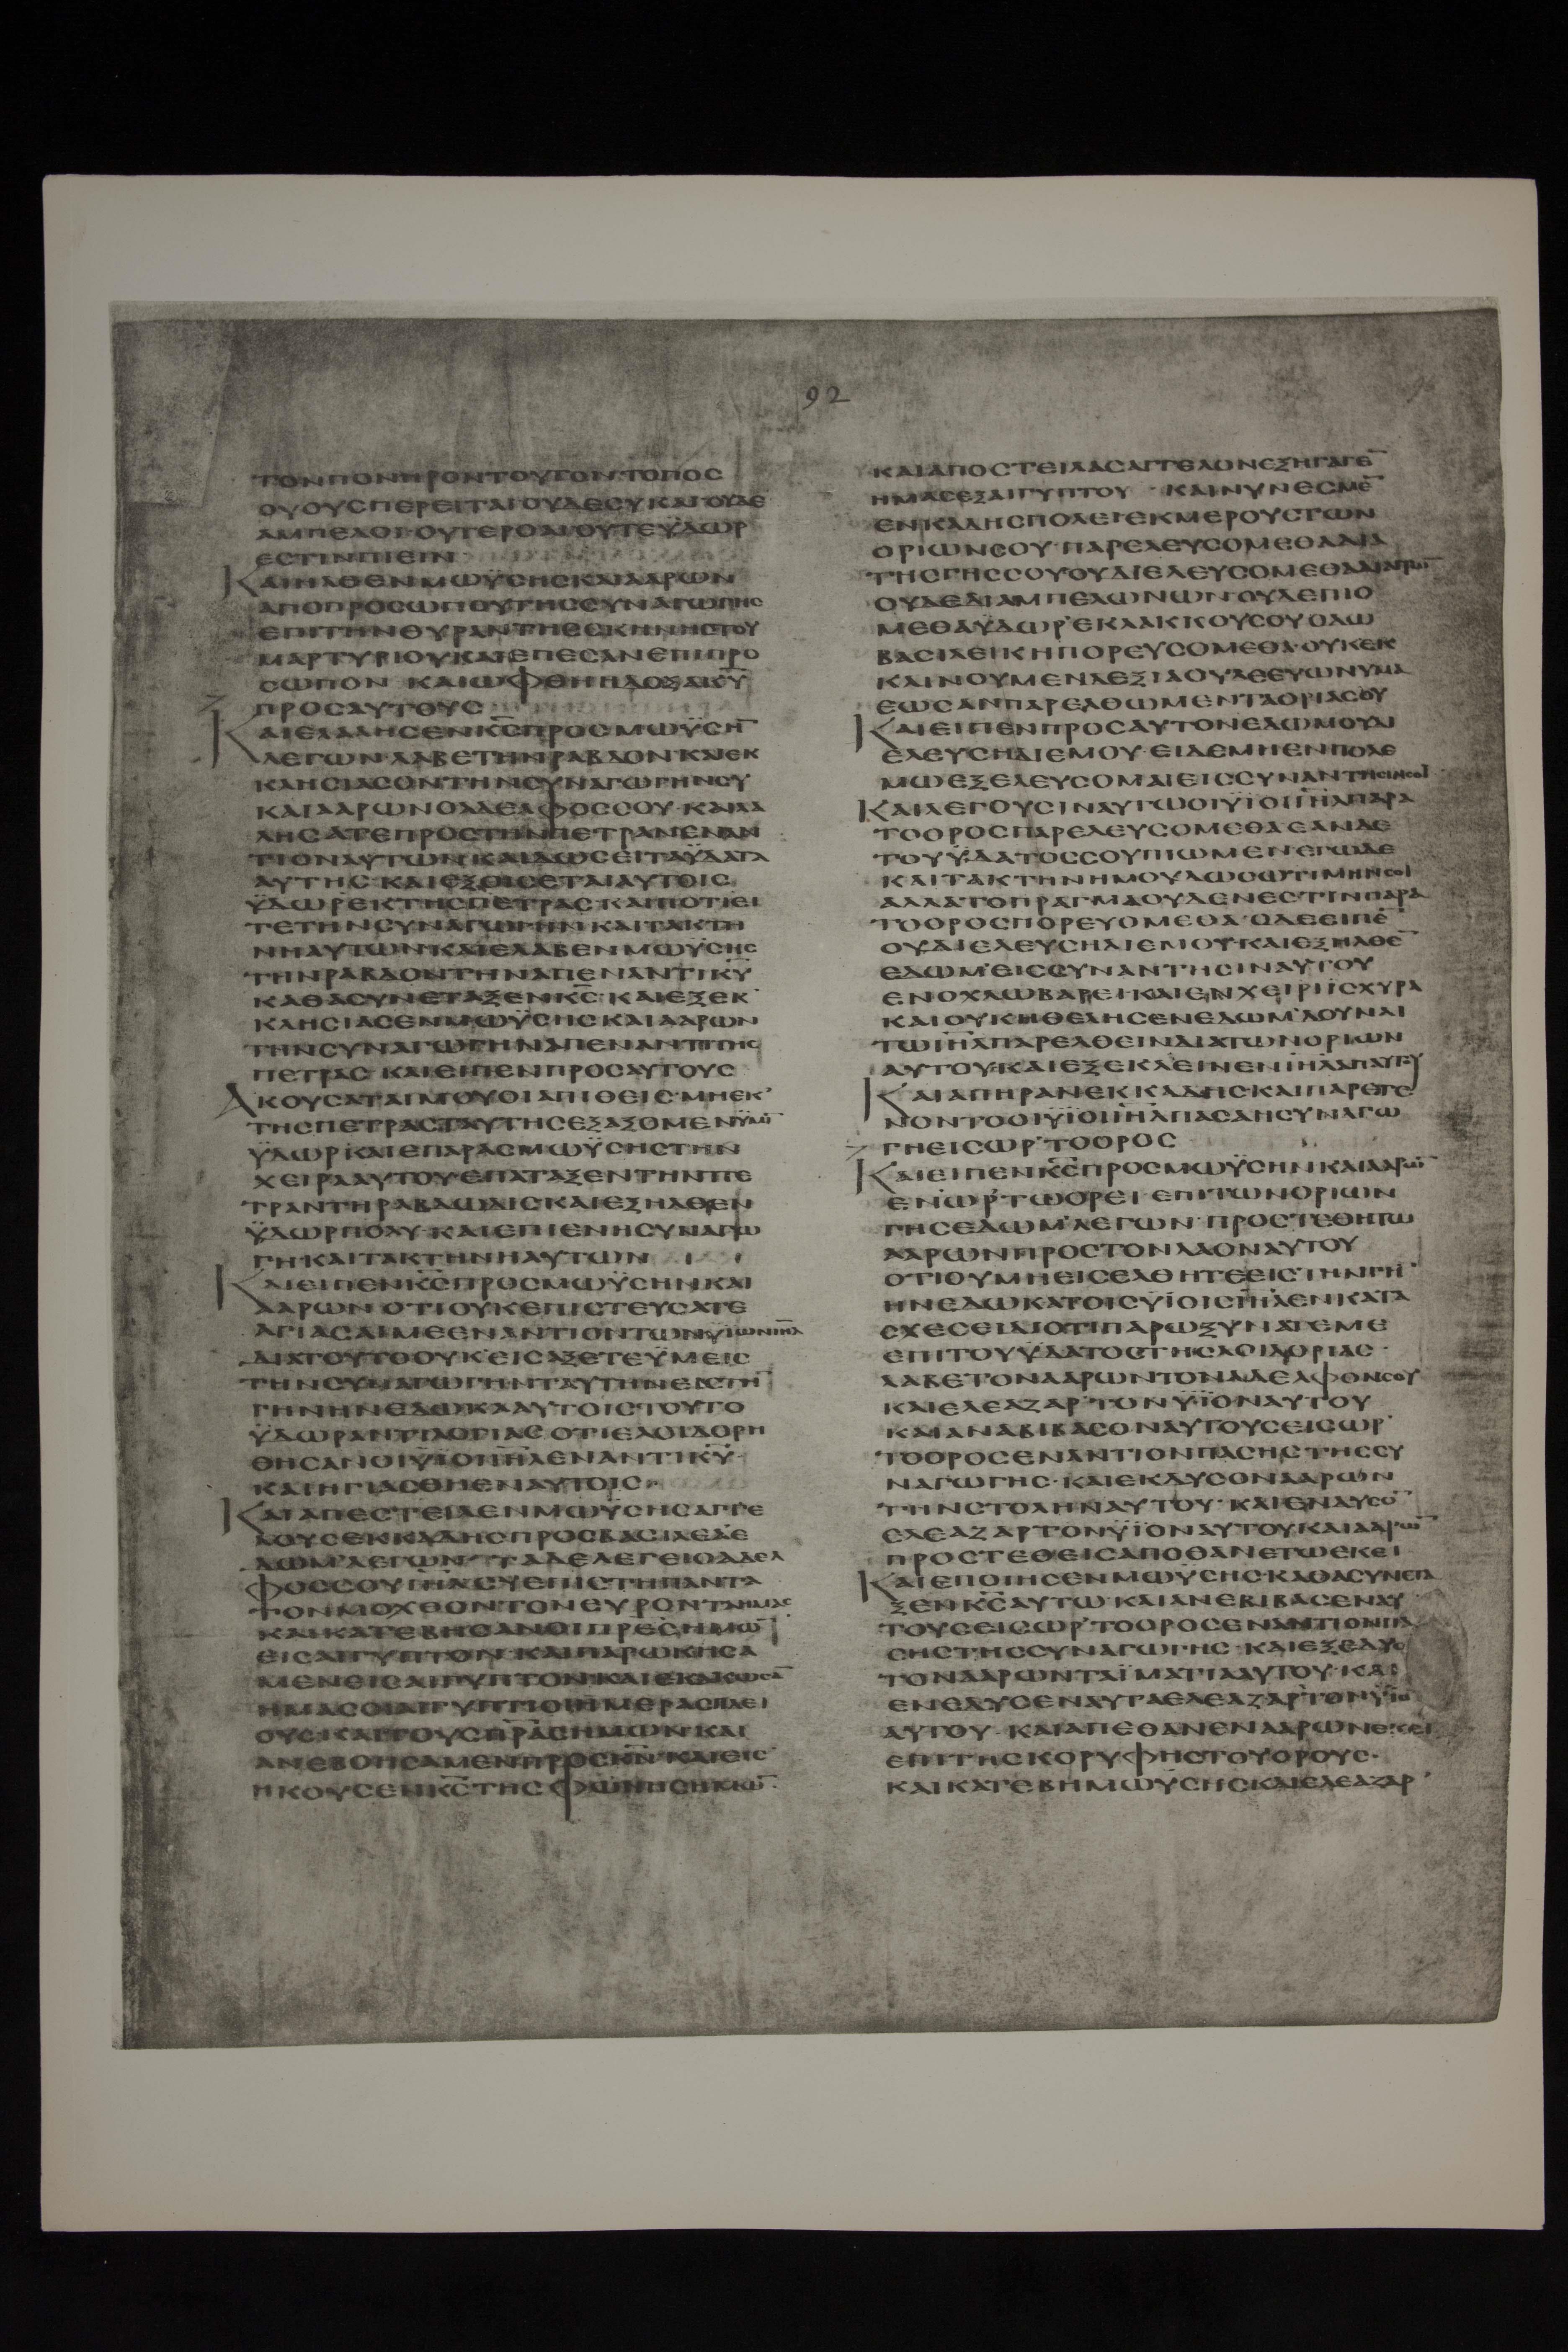 92
ΤΟΝΠΟΝΗΡΟΝΤΟΥΤΟΝ·ΤΟΠΟΣ
ΟΥΟΥΣΠΕΡΕΙΤΑΙΟΥΔΕΣΥΚΑΙΟΥΔΕ
ΑΜΠΕΛΟΙ·ΟΥΤΕΡΟΑΙΟΥΤΕΫΔΩΡ
ΕΣΤΙΝΠΙΕΙΝ
ΚΑΙΗΛΘΕΝΜΩΫΣΗΣΚΑΙΑΑΡΩΝ
ΑΠΟΠΡΟΣΩΠΟΥΤΗΣΣΥΝΑΓΩΓΗΣ
ΕΠΙΤΗΝΘΥΡΑΝΤΗΣΣΚΗΝΗΣΤΟΥ
ΜΑΡΤΥΡΙΟΥΚΑΙΕΠΕΣΑΝΕΠΙΠΡΟ
ΣΩΠΟΝ ΚΑΙΩΦΘΗΗΔΟΞΑΚΥ̅
ΠΡΟΣΑΥΤΟΥΣ
ΚΑΙΕΛΑΛΗΣΕΝΚ̅Σ̅ΠΡΟΣΜΩΫΣΗ̅
ΛΕΓΩΝ·ΛΑΒΕΤΗΝΡΑΒΔΟΝ·ΚΑΙΕΚ
ΚΛΗΣΙΑΣΟΝΤΗΝΣΥΝΑΓΩΓΗΝΣΥ
ΚΑΙΑΑΡΩΝΟΑΔΕΛΦΟΣΣΟΥ·ΚΑΙΛΑ
ΛΗΣΑΤΕΠΡΟΣΤΗΝΠΕΤΡΑΝΕΝΑΝ
ΤΙΟΝΑΥΤΩΝ·ΚΑΙΔΩΣΕΙΤΑΫΔΑΤΑ
ΑΥΤΗΣ·ΚΑΙΕΞΟΙΣΕΤΑΙΑΥΤΟΙΣ
ΫΔΩΡΕΚΤΗΣΠΕΤΡΑΣ·ΚΑΙΠΟΤΙΕΙ
ΤΕΤΗΝΣΥΝΑΓΩΓΗΝΚΑΙΤΑΚΤΗ
ΝΗΑΥΤΩΝ·ΚΑΙΕΛΑΒΕΝΜΩΫΣΗΣ
ΤΗΝΡΑΒΔΟΝΤΗΝΑΠΕΝΑΝΤΙΚ̅Υ̅
ΚΑΘΑΣΥΝΕΤΑΞΕΝΚ̅Σ̅·ΚΑΙΕΞΕΚ
ΚΛΗΣΙΑΣΕΝΜΩΫΣΗΣΚΑΙΑΑΡΩΝ
ΤΗΝΣΥΝΑΓΩΓΗΝΑΠΕΝΑΝΤΙΤΗΣ
ΠΕΤΡΑΣ·ΚΑΙΕΙΠΕΝΠΡΟΣΑΥΤΟΥΣ
ΑΚΟΥΣΑΤΑΙΜΟΥΟΙΑΠΙΘΕΙΣ·ΜΗΕΚ
ΤΗΣΠΕΤΡΑΣΤΑΥΤΗΣΕΞΑΞΟΜΕΝΫΜΙ̅
ΫΔΩΡ·ΚΑΙΕΠΑΡΑΣΜΩΫΣΗΣΤΗΝ
ΧΕΙΡΑΑΥΤΟΥΕΠΑΤΑΞΕΝΤΗΝΠΕ
ΤΡΑΝΤΗΡΑΒΔΩΔΙΣΚΑΙΕΞΗΛΘΕΝ
ΫΔΩΡΠΟΛΥ·ΚΑΙΕΠΙΕΝΗΣΥΝΑΓΩ
ΓΗΚΑΙΤΑΚΤΗΝΗΑΥΤΩΝ
ΚΑΙΕΙΠΕΝΚ̅Σ̅ΠΡΟΣΜΩΫΣΗΝΚΑΙ
ΑΑΡΩΝ·ΟΤΙΟΥΚΕΠΙΣΤΕΥΣΑΤΕ
ΑΓΙΑΣΑΙΜΕΕΝΑΝΤΙΟΝΤΩΝΫΙΩΝΙ̅Η̅Λ̅
ΔΙΑΤΟΥΤΟΟΥΚ'ΕΙΣΑΞΕΤΕΫΜΕΙΣ
ΤΗΝΣΥΝΑΓΩΓΗΝΤΑΥΤΗΝΕΙΣΤΗ̅
ΓΗΝΗΝΕΔΩΚΑΑΥΤΟΙΣ·ΤΟΥΤΟ
ΫΔΩΡΑΝΤΙΛΟΓΙΑΣ·ΟΤΙΕΛΟΙΔΟΡΗ
ΘΗΣΑΝΟΙΫΪΟΙΙ̅Η̅Λ̅ΕΝΑΝΤΙΚ̅Υ̅·
ΚΑΙΗΓΙΑΣΘΗΕΝΑΥΤΟΙΣ·
ΚΑΙΑΠΕΣΤΕΙΛΕΝΜΩΫΣΗΣΑΓΓΕ
ΛΟΥΣΕΚΚΑΔΗΣΠΡΟΣΒΑΣΙΛΕΑΕ
ΔΩΜ'ΛΕΓΩΝ·ΤΑΔΕΛΕΓΕΙΟΑΔΕΛ
ΦΟΣΣΟΥΙ̅Η̅Λ̅ΣΥΕΠΙΣΤΗΠΑΝΤΑ
ΤΟΝΜΟΧΘΟΝΤΟΝΕΥΡΟΝΤΑΗΜΑΣ
ΚΑΙΚΑΤΕΒΗΣΑΝΟΙΠ̅Ρ̅Ε̅Σ̅ΗΜΩ̅
ΕΙΣΑΙΓΥΠΤΟΝ·ΚΑΙΠΑΡΩΚΗΣΑ
ΜΕΝΕΙΣΑΙΓΥΠΤΟΝΚΑΙΕΚΑΚΩΣΑ̅
ΗΜΑΣΟΙΑΙΓΥΠΤΙΟΙΗΜΕΡΑΣΠΛΕΙ
ΟΥΣ·ΚΑΙΤΟΥΣΠ̅Ρ̅Α̅Σ̅ΗΜΩΝ·ΚΑΙ
ΑΝΕΒΟΗΣΑΜΕΝΠΡΟΣΚ̅Ν̅·ΚΑΙΕΙΣ
ΗΚΟΥΣΕΝΚ̅Σ̅ΤΗΣΦΩΝΗΣΗΜΩ̅·
ΚΑΙΑΠΟΣΤΕΙΛΑΣΑΓΓΕΛΟΝΕΞΗΓΑΓΕ̅
ΗΜΑΣΕΞΑΙΓΥΠΤΟΥ·ΚΑΙΝΥΝΕΣΜΕ̅
ΕΝΚΑΔΗΣΠΟΛΕΙ·ΕΚΜΕΡΟΥΣΤΩΝ
ΟΡΙΩΝΣΟΥ·ΠΑΡΕΛΕΥΣΟΜΕΘΑΔΙΑ
ΤΗΣΓΗΣΣΟΥ·ΟΥΔΙΕΛΕΥΣΟΜΕΘΑΔΙΑΓΡΩ̅
ΟΥΔΕΔΙΑΜΠΕΛΩΝΩΝ·ΟΥΔΕΠΙΟ
ΜΕΘΑΫΔΩΡ'ΕΚΛΑΚΚΟΥΣΟΥ·ΟΔΩ
ΒΑΣΙΛΕΙΚΗΠΟΡΕΥΣΟΜΕΘΑ·ΟΥΚΕΚ
ΚΛΙΝΟΥΜΕΝΔΕΞΙΑΟΥΔΕΕΥΩΝΥΜΑ
ΕΩΣΑΝΠΑΡΕΛΘΩΜΕΝΤΑΟΡΙΑΣΟΥ
ΚΑΙΕΙΠΕΝΠΡΟΣΑΥΤΟΝΕΔΩΜΟΥΔΙ
ΕΛΕΥΣΗΔΙΕΜΟΥ·ΕΙΔΕΜΗΕΝΠΟΛΕ
ΜΩΕΞΕΛΕΥΣΟΜΑΙΕΙΣΣΥΝΑΝΤΗΣΙΝΣΟΙ
ΚΑΙΛΕΓΟΥΣΙΝΑΥΤΩΟΙΫΪΟΙΙ̅Η̅Λ̅ΠΑΡΑ
ΤΟΟΡΟΣΠΑΡΕΛΕΥΣΟΜΕΘΑ·ΕΑΝΔΕ
ΤΟΥΫΔΑΤΟΣΣΟΥΠΙΩΜΕΝΕΓΩΔΕ
ΚΑΙΤΑΚΤΗΝΗΜΟΥΔΩΣΩΤΙΜΗΝΣΟΙ
ΑΛΛΑΤΟΠΡΑΓΜΑΟΥΔΕΝΕΣΤΙΝΠΑΡΑ
ΤΟΟΡΟΣΠΟΡΕΥΟΜΕΘΑ·ΟΔΕΕΙΠΕ̅
ΟΥΔΙΕΛΕΥΣΗΔΙΕΜΟΥ·ΚΑΙΕΞΗΛΘΕ̅
ΕΔΩΜ'ΕΙΣΣΥΝΑΝΤΗΣΙΝΑΥΤΟΥ
ΕΝΟΧΛΩΒΑΡΕΙ·ΚΑΙΕΝΧΕΙΡΙΪΣΧΥΡΑ
ΚΑΙΟΥΚΗΘΕΛΗΣΕΝΕΔΩΜ'ΔΟΥΝΑΙ
ΤΩΙ̅Η̅Λ̅ΠΑΡΕΛΘΕΙΝΔΙΑΤΩΝΟΡΙΩΝ
ΑΥΤΟΥ·ΚΑΙΕΞΕΚΛΕΙΝΕΝΙ̅Η̅Λ̅ΑΠΑΥΤΟΥ
ΚΑΙΑΠΗΡΑΝΕΚΚΑΔΗΣ·ΚΑΙΠΑΡΕΓΕ
ΝΟΝΤΟΟΙΫΪΟΙΙ̅Η̅Λ̅ΠΑΣΑΗΣΥΝΑΓΩ
ΓΗΕΙΣΩΡ'ΤΟΟΡΟΣ
ΚΑΙΕΙΠΕΝΚ̅Σ̅ΠΡΟΣΜΩΫΣΗΝΚΑΙΑΑΡΩ̅
ΕΝΩΡ'ΤΩΟΡΕΙ·ΕΠΙΤΩΝΟΡΙΩΝ
ΓΗΣΕΔΩΜ'ΛΕΓΩΝ·ΠΡΟΣΤΕΘΗΤΩ
ΑΑΡΩΝΠΡΟΣΤΟΝΛΑΟΝΑΥΤΟΥ
ΟΤΙΟΥΜΗΕΙΣΕΛΘΗΤΕΕΙΣΤΗΝΓΗ̅
ΗΝΕΔΩΚΑΤΟΙΣΫΪΟΙΣΙ̅Η̅Λ̅ΕΝΚΑΤΑ
ΣΧΕΣΕΙ·ΔΙΟΤΙΠΑΡΩΞΥΝΑΤΕΜΕ
ΕΠΙΤΟΥΫΔΑΤΟΣΤΗΣΛΟΙΔΟΡΙΑΣ·
ΛΑΒΕΤΟΝΑΑΡΩΝΤΟΝΑΔΕΛΦΟΝΣΟΥ
ΚΑΙΕΛΕΑΖΑΡ'ΤΟΝΫΪΟΝΑΥΤΟΥ
ΚΑΙΑΝΑΒΙΒΑΣΟΝΑΥΤΟΥΣΕΙΣΩΡ'
ΤΟΟΡΟΣΕΝΑΝΤΙΟΝΠΑΣΗΣΤΗΣΣΥ
ΝΑΓΩΓΗΣ·ΚΑΙΕΚΔΥΣΟΝΑΑΡΩΝ
ΤΗΝΣΤΟΛΗΝΑΥΤΟΥ·ΚΑΙΕΝΔΥΣΟ̅
ΕΛΕΑΖΑΡΤΟΝΫΪΟΝΑΥΤΟΥ·ΚΑΙΑΑΡΩ̅
ΠΡΟΣΤΕΘΕΙΣΑΠΟΘΑΝΕΤΩΕΚΕΙ
ΚΑΙΕΠΟΙΗΣΕΝΜΩΫΣΗΣ·ΚΑΘΑΣΥΝΕΤΑ
ΞΕΝΚ̅Σ̅ΑΥΤΩ·ΚΑΙΑΝΕΒΙΒΑΣΕΝΑΥ
ΤΟΥΣΕΙΣΩΡ'ΤΟΟΡΟΣΕΝΑΝΤΙΟΝΠΑ
ΣΗΣΤΗΣΣΥΝΑΓΩΓΗΣ·ΚΑΙΕΞΕΔΥΣΕ
ΤΟΝΑΑΡΩΝΤΑΪΜΑΤΙΑΑΥΤΟΥ·ΚΑΙ
ΕΝΕΔΥΣΕΝΑΥΤΑΕΛΕΑΖΑΡ'ΤΟΝΫΪΟ̅
ΑΥΤΟΥ·ΚΑΙΑΠΕΘΑΝΕΝΑΑΡΩΝΕΚΕΙ
ΕΠΙΤΗΣΚΟΡΥΦΗΣΤΟΥΟΡΟΥΣ·
ΚΑΙΚΑΤΕΒΗΜΩΫΣΗΣΚΑΙΕΛΕΑΖΑΡ'